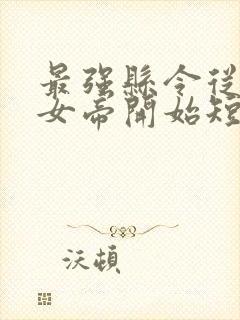 最強縣令從
女帝開始短
沃頓